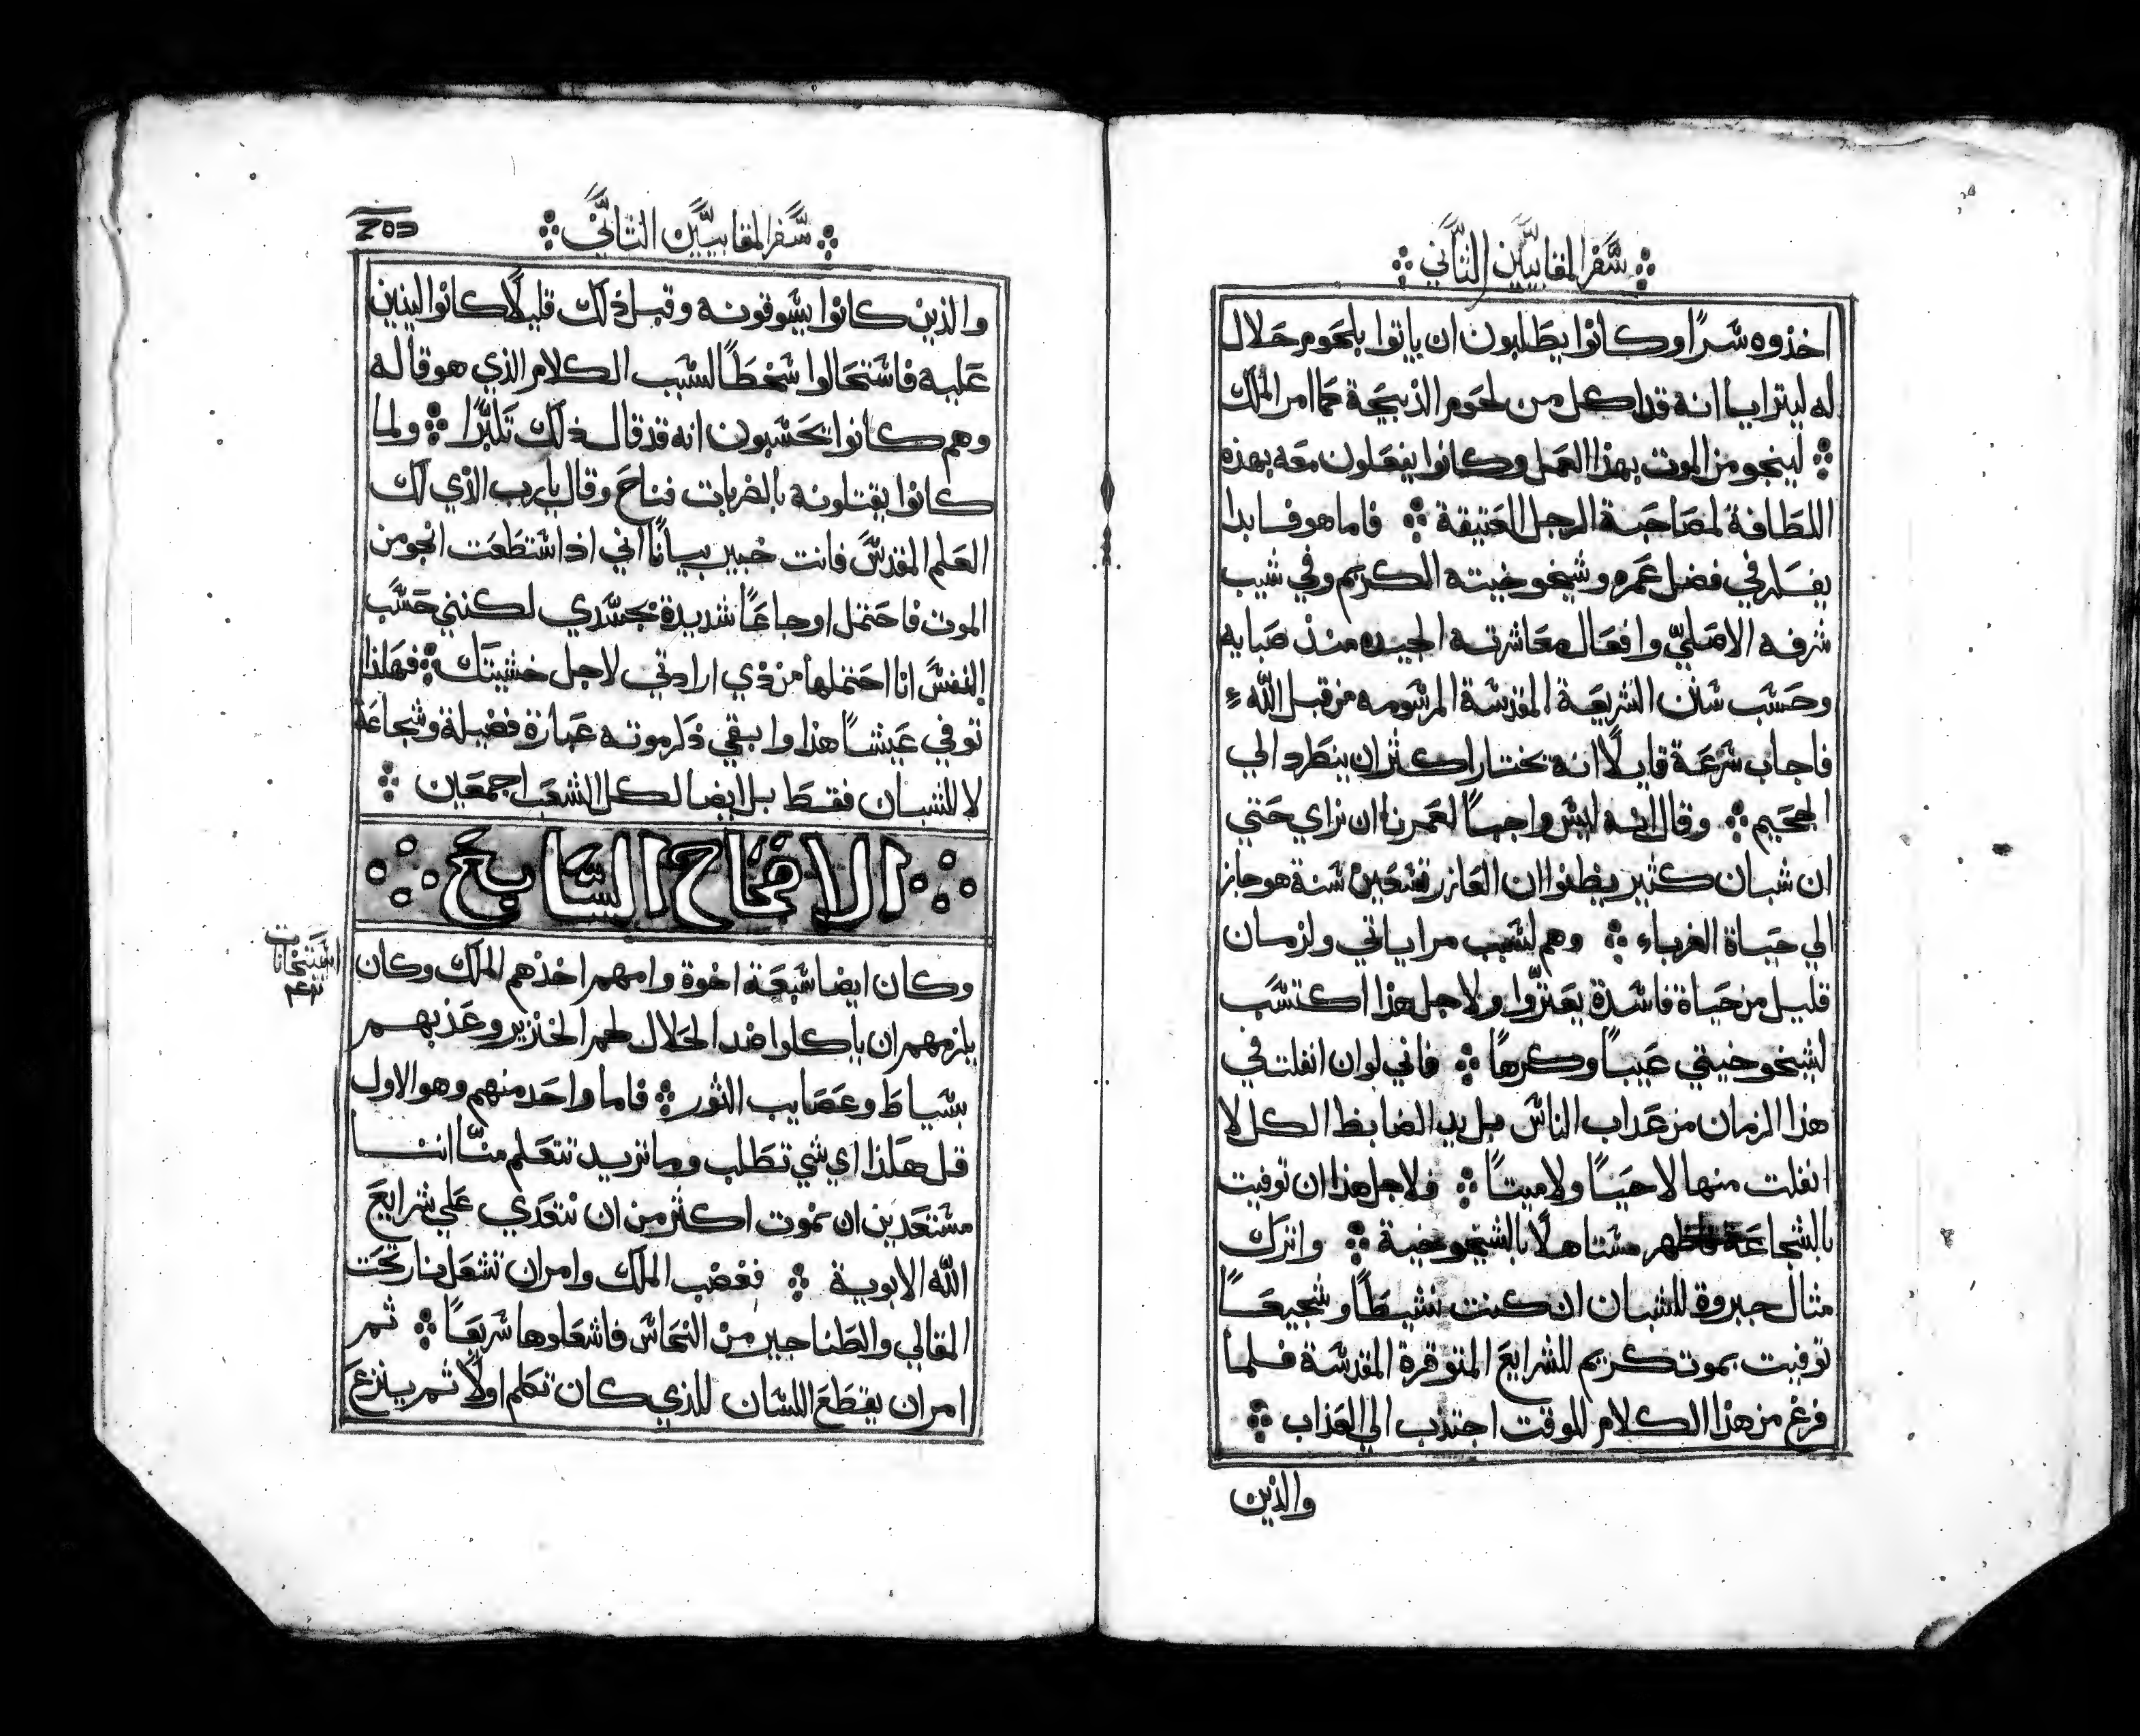 سفر المقابيين الثاني
اخذوه سرًا وكانوا يطلبون ان ياتوا بلحوم حلال
له ليترايا انه قد اكل من لحوم الذبيحة كما امر الملك
لينجو من الموت بهذا العمل وكانوا يفعلون معه بهذه
اللطافة لمصاحبة الرجل العتيقة فاما هو فابدا
يفكر في فضل عمره وشيخوخيته الكريم وفي شيب
شرفه الاصليّ وافعال معاشرته الجيده منذ صبايه
وحسب سنن الشريعة المقدسة المرسومه من قبل الله
فاجاب سرعة قايلًا انه يختار اكثر ان ينطرد الي
الجحيم وقال انه ليس واجبًا لعمرنا ان نراي حتي
ان شبان كثير يظنوا ان العازر تسعين سنة هو جاز
الي حياة الغرباء وهم لسبب مراياتي ولزمان
قليل من حياة فاسدة يغترّوا ولاجل هذا اكتسب
لشيخوخيتي عيبًا وكرهًا فاني لو ان انفلت في
هذا الزمان من عداب الناس بل يد الضابط الكل لا
انفلت منها لا حيًا ولا ميتًا فلاجل هذا ان توفيت
بالشجاعة فاظهر مستاهلًا بالشيخوخية واترك
مثال جبروة للشبان ان كنت نشيطًا وشجيعًا
توفيت بموت كريم للشرايع المتوقرة المقدسة فلما
فرغ من هذا الكلام للوقت اجتذب الي العذاب
والذين
سفر المقابيين الثاني
والذين كانوا يسوقونه وقبل ذلك قليلًا كانوا لينين
عليه فاستحالوا سخطًا لسبب الكلام الذي هو قاله
وهم كانوا يحسبون انه قد قال ذلك تكبرًا ولما
كانوا يقتلونه بالضربات فناح وقال يا رب الذي لك
العلم المقدس فانت خبير بيانًا اني اذ استطعت انجو من
الموت فاحتمل اوجاعًا شديدة بجسدي لكنني حسب
النفس انا احتملها من ذي ارادتي لاجل خشيتك فهكذا
توفي عيشًا هذا وابقي ذكر موته عبارة فضيلة وشجاعة
لا للشبان فقط بل ايضا لكل الشعب اجمعين
الاصحاح السابع
وكان ايضا سبعة اخوة وامهم اخذهم الملك وكان
يلزمهم ان ياكلوا ضد الحلال لحم الخنزير وعذبهم
بسياط وعصايب الثور فاما واحد منهم وهو الاول
قل هكذا اي شي تطلب وما تريد تتعلم منّا اننا
مستعدين ان نموت اكثر من ان نتعدي علي شرايع
الله الابوية فغضب الملك وامر ان تشعل نار تحت
المقالي والطناجير من النحاس فاشعلوها سريعًا ثم
امر ان يقطع اللسان للذي كان تكلم اولًا ثم ينزع